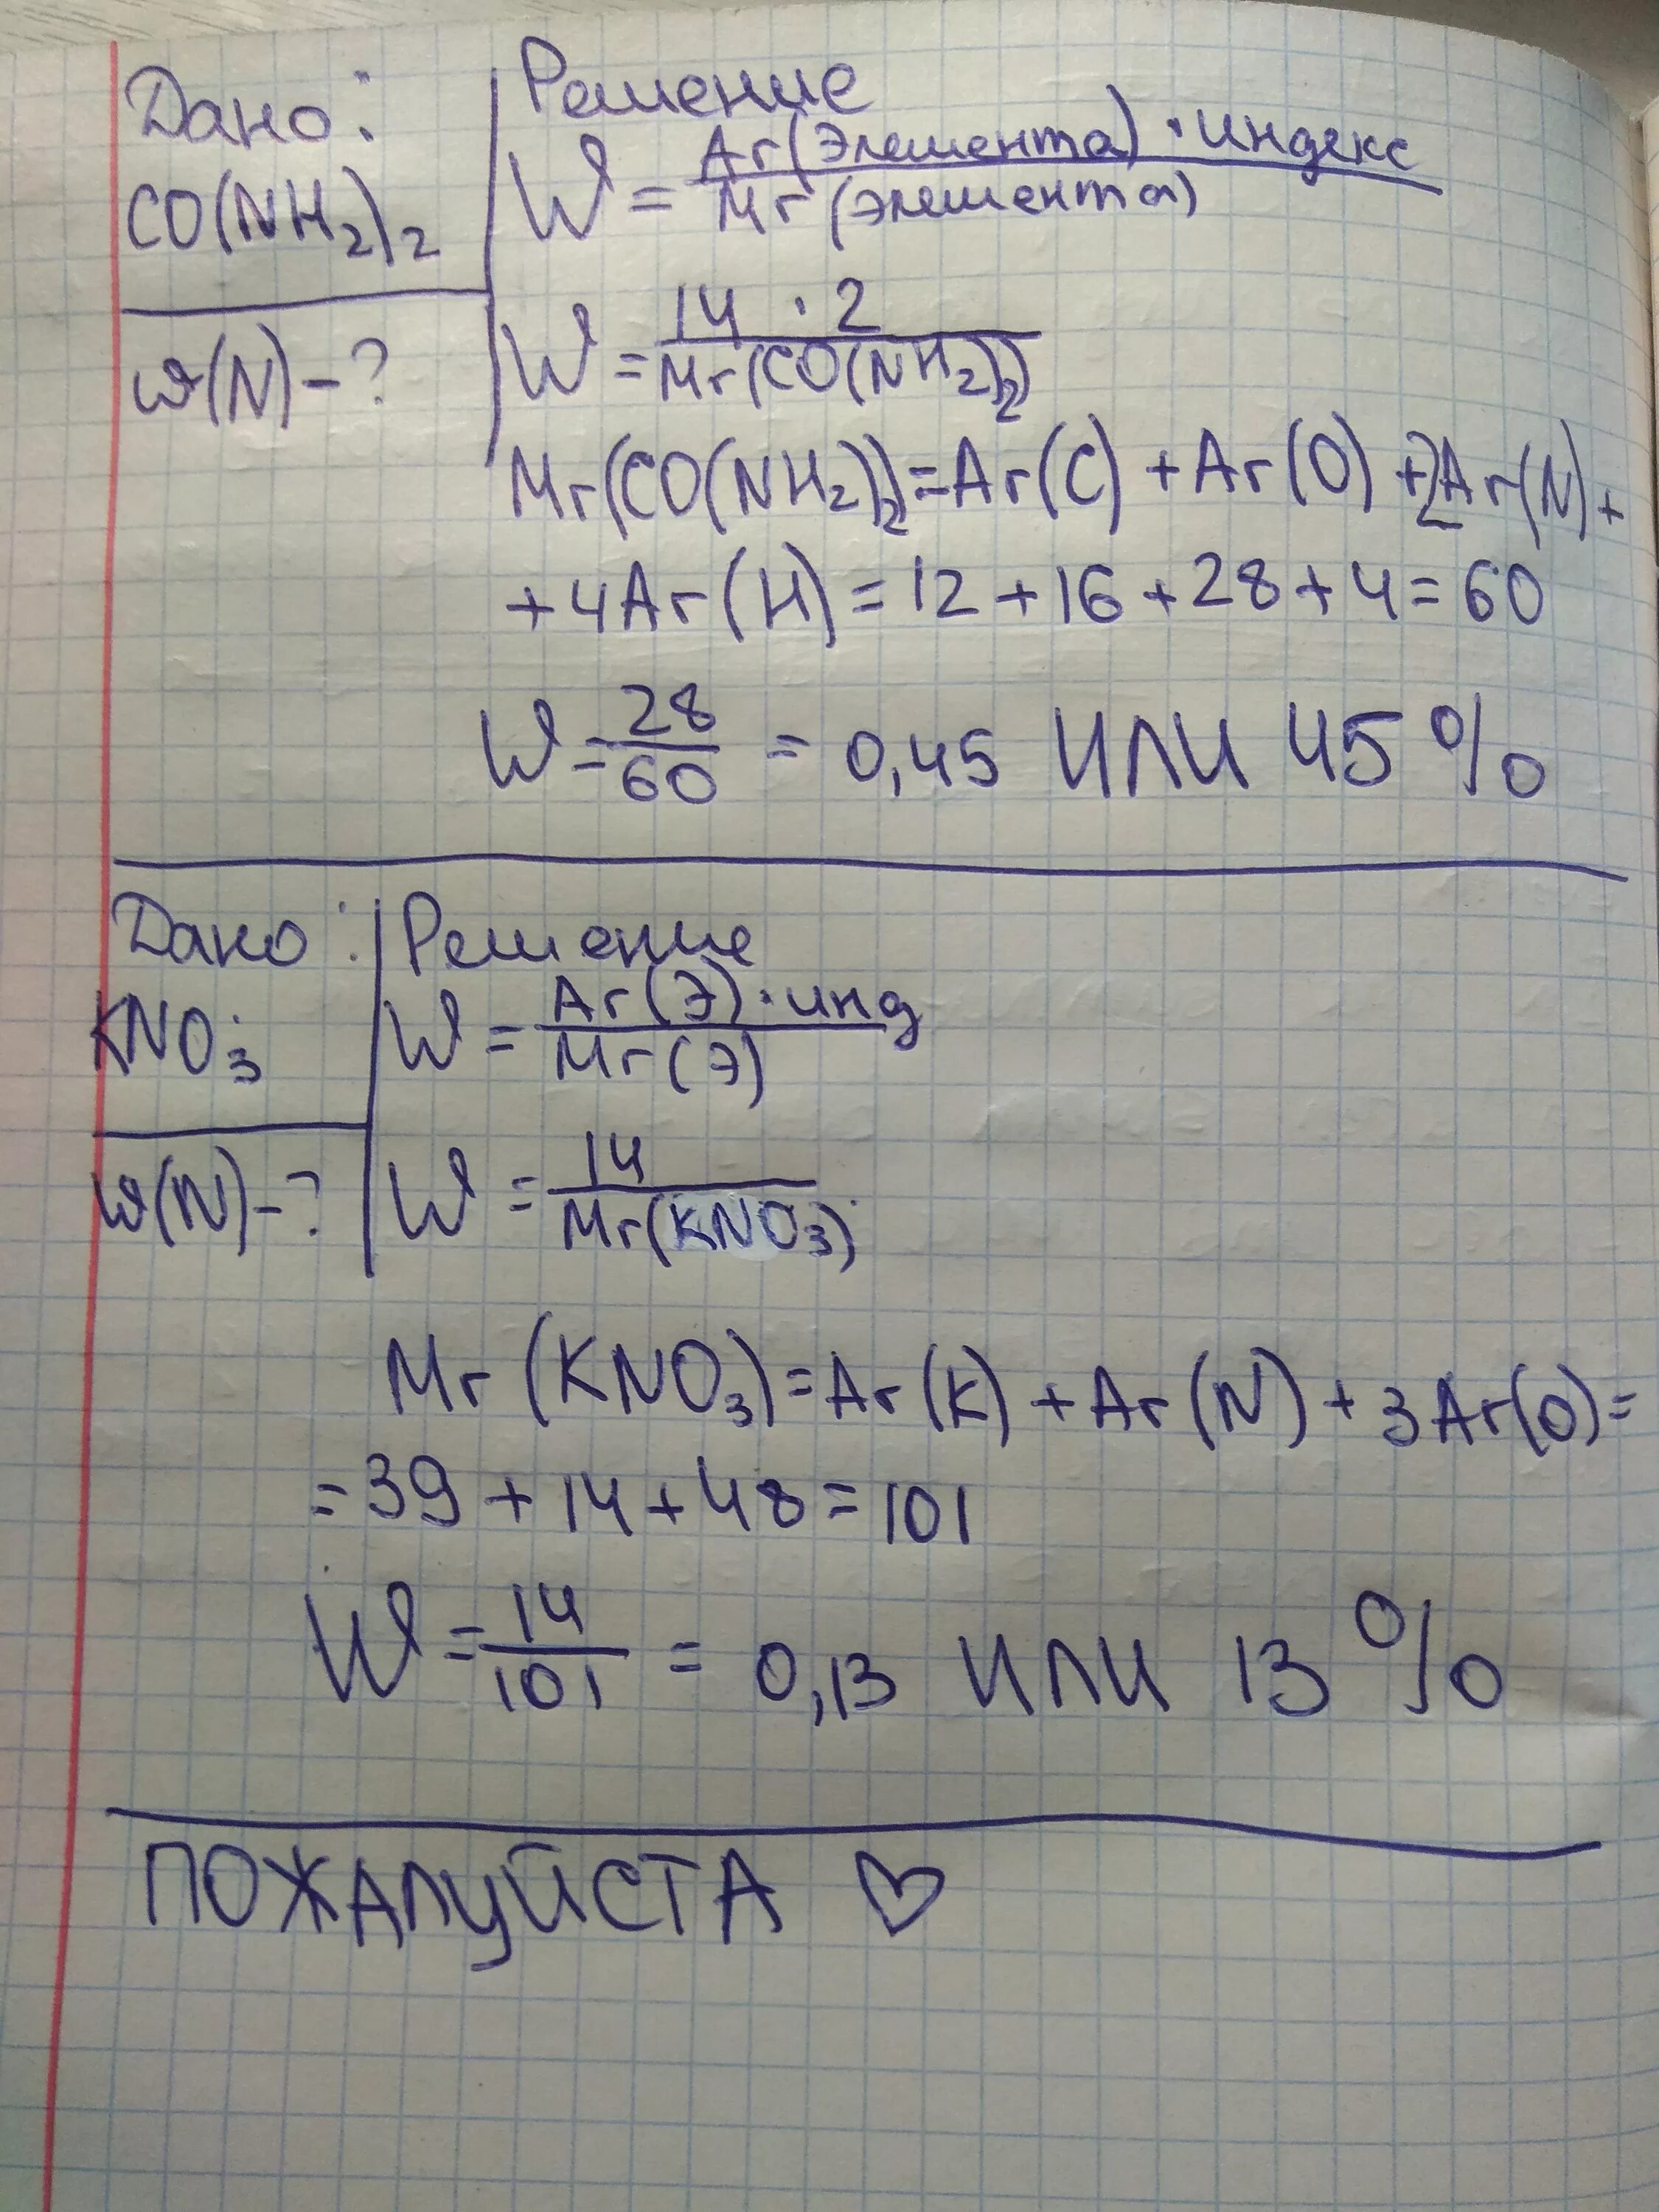 Дано:
CO(NH₂)₂
w(N)-?
Решение
W = Ar(Элемента) · индекс / Mr (элемента)
W = 14 · 2 / Mr(CO(NH₂)₂)
Mr(CO(NH₂)₂)=Ar(C) + Ar(O) + 2Ar(N) +
+ 4Ar(H) = 12 + 16 + 28 + 4 = 60
W = 28 / 60 = 0,45 ИЛИ 45 %
Дано:
KNO₃
w(N)-?
Решение
W = Ar(Э) · инд / Mr(Э)
W = 14 / Mr(KNO₃)
Mr (KNO₃) = Ar(K) + Ar(N) + 3Ar(O) =
= 39 + 14 + 48 = 101
W = 14 / 101 = 0,13 ИЛИ 13 %
ПОЖАЛУЙСТА ♡